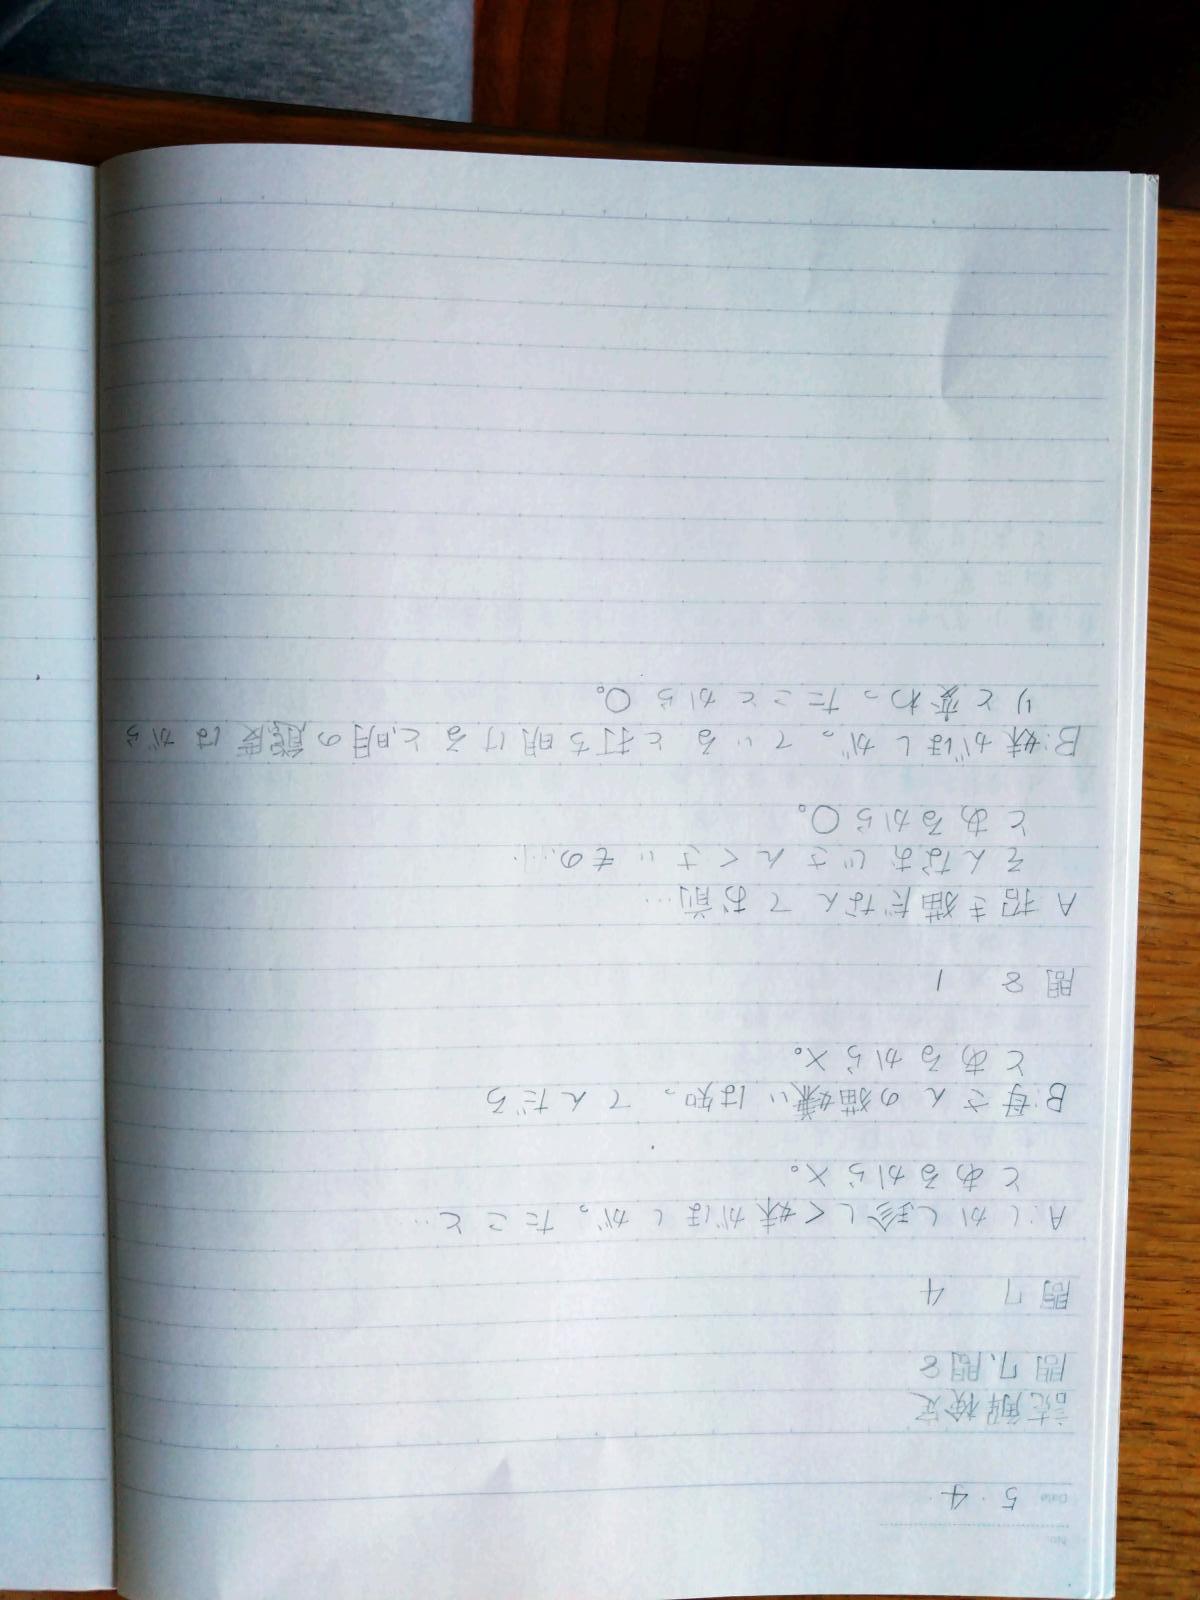 No.
Date 5・4・
読解検定
問7、問8
問7 4
A:しかし珍しく妹がほしがったこと…
とあるから×。
B:母さんの猫嫌いは知ってんだろ
とあるから×。
問8 1
A 招き猫だなんてお前…
そんなおじさんくさいもの…
とあるから○。
B:妹がほしがっていると打ち明けると、明の態度はがら
りと変わったことから○。